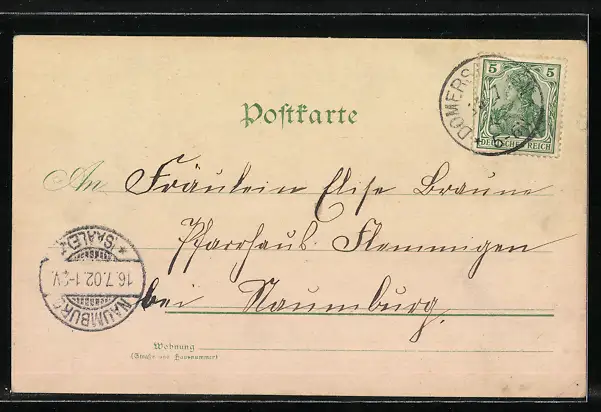 Postkarte
5 5
DEUTSCHES REICH
DOMERS
An Fräulein Elise Braune
Pfarrhaus Flemmigen
bei Naumburg.
NAUMBURG
16.7.02.1-2V.
* (SAALE) *
Wohnung
(Straße und Hausnummer)